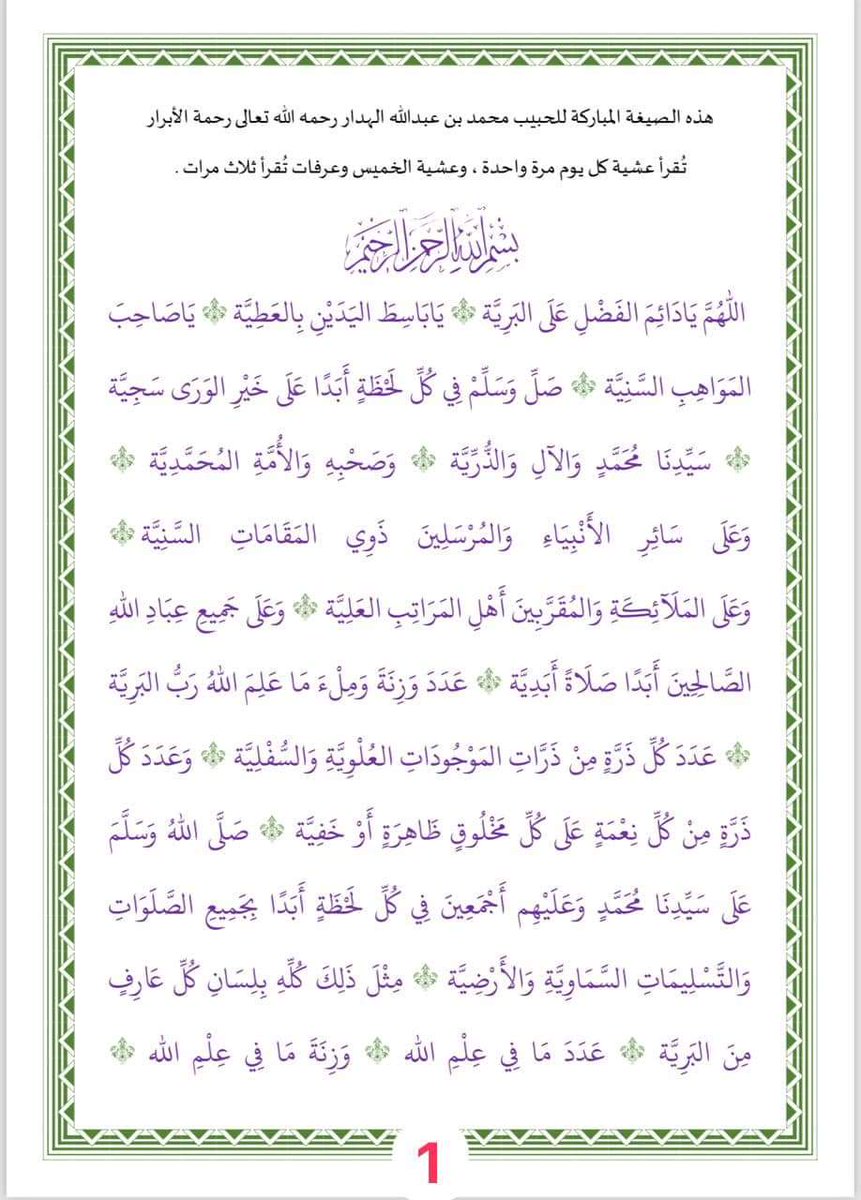 هذه الصيغة المباركة للحبيب محمد بن عبدالله الهدار رحمه الله تعالى رحمة الأبرار
تُقرأ عشية كل يوم مرة واحدة ، وعشية الخميس وعرفات تُقرأ ثلاث مرات .
بِسْمِ اللَّهِ الرَّحْمَٰنِ الرَّحِيمِ
اللَّهُمَّ يَادَائِمَ الفَضْلِ عَلَى البَرِيَّة ۞ يَابَاسِطَ اليَدَيْنِ بِالعَطِيَّة ۞ يَاصَاحِبَ
المَوَاهِبِ السَّنِيَّة ۞ صَلِّ وَسَلِّمْ فِي كُلِّ لَحْظَةٍ أَبَدًا عَلَى خَيْرِ الوَرَى سَجِيَّة
۞ سَيِّدِنَا مُحَمَّدٍ وَالآلِ وَالذُّرِّيَّة ۞ وَصَحْبِهِ وَالأُمَّةِ المُحَمَّدِيَّة ۞
وَعَلَى سَائِرِ الأَنْبِيَاءِ وَالمُرْسَلِينَ ذَوِي المَقَامَاتِ السَّنِيَّة ۞
وَعَلَى المَلَآئِكَةِ وَالمُقَرَّبِينَ أَهْلِ المَرَاتِبِ العَلِيَّة ۞ وَعَلَى جَمِيعِ عِبَادِ اللهِ
الصَّالِحِينَ أَبَدًا صَلَاةً أَبَدِيَّة ۞ عَدَدَ وَزِنَةَ وَمِلْءَ مَا عَلِمَ اللهُ رَبُّ البَرِيَّة
۞ عَدَدَ كُلِّ ذَرَّةٍ مِنْ ذَرَّاتِ المَوْجُودَاتِ العُلْوِيَّةِ وَالسُّفْلِيَّة ۞ وَعَدَدَ كُلِّ
ذَرَّةٍ مِنْ كُلِّ نِعْمَةٍ عَلَى كُلِّ مَخْلُوقٍ ظَاهِرَةٍ أَوْ خَفِيَّة ۞ صَلَّى اللهُ وَسَلَّمَ
عَلَى سَيِّدِنَا مُحَمَّدٍ وَعَلَيْهِم أَجْمَعِينَ فِي كُلِّ لَحْظَةٍ أَبَدًا بِجَمِيعِ الصَّلَوَاتِ
وَالتَّسْلِيمَاتِ السَّمَاوِيَّةِ وَالأَرْضِيَّة ۞ مِثْلَ ذَلِكَ كُلِّهِ بِلِسَانِ كُلِّ عَارِفٍ
مِنَ البَرِيَّة ۞ عَدَدَ مَا فِي عِلْمِ الله ۞ وَزِنَةَ مَا فِي عِلْمِ الله ۞
1